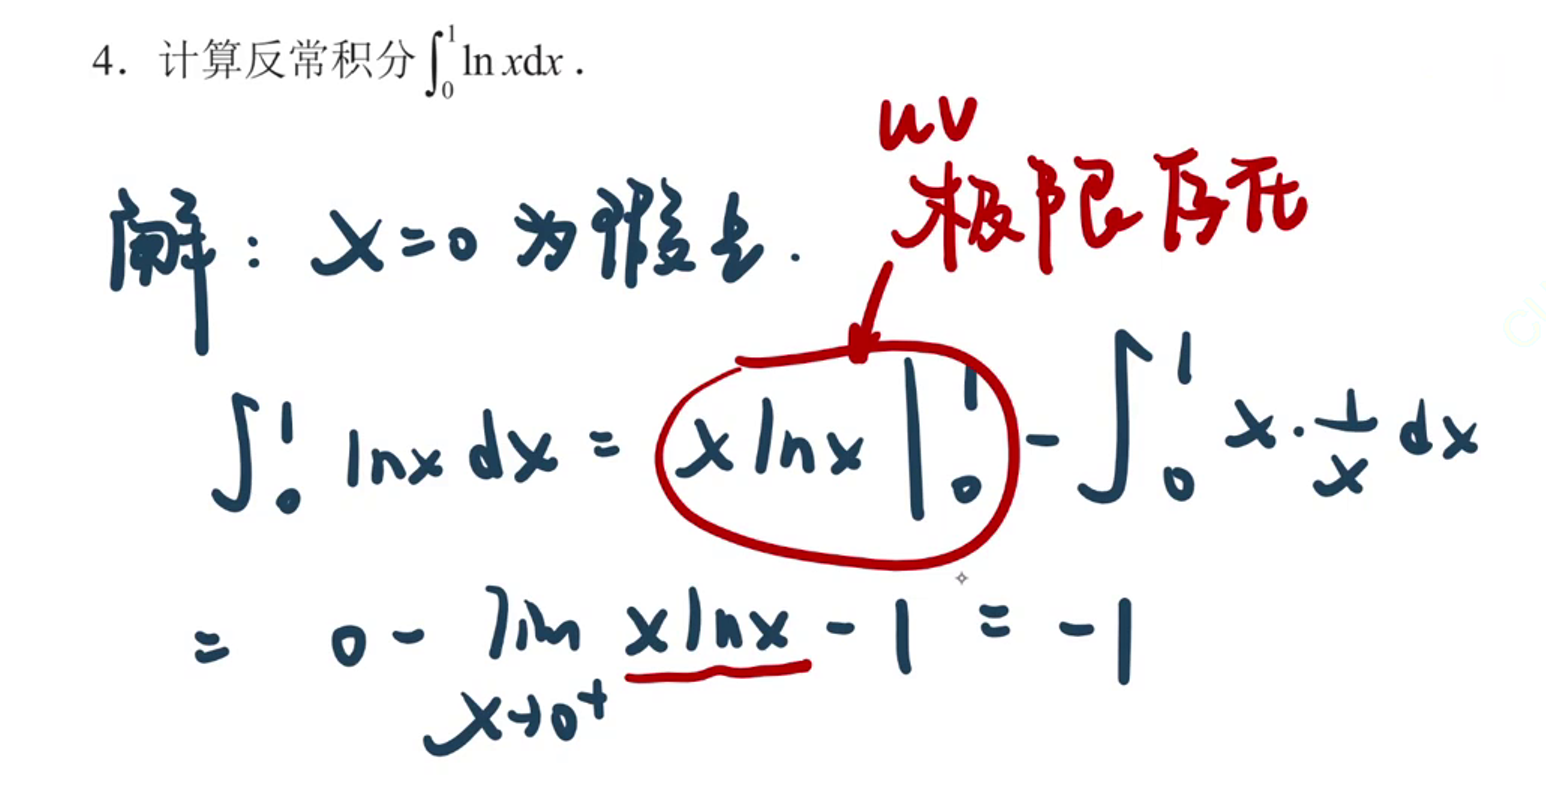 4. 计算反常积分∫₀¹ ln xdx .
uv
极限存在
解: x=0 为瑕点.
∫₀¹ lnx dx = x lnx |₀¹ - ∫₀¹ x · 1/x dx
= 0 - lim x→0⁺ x lnx - 1 = -1